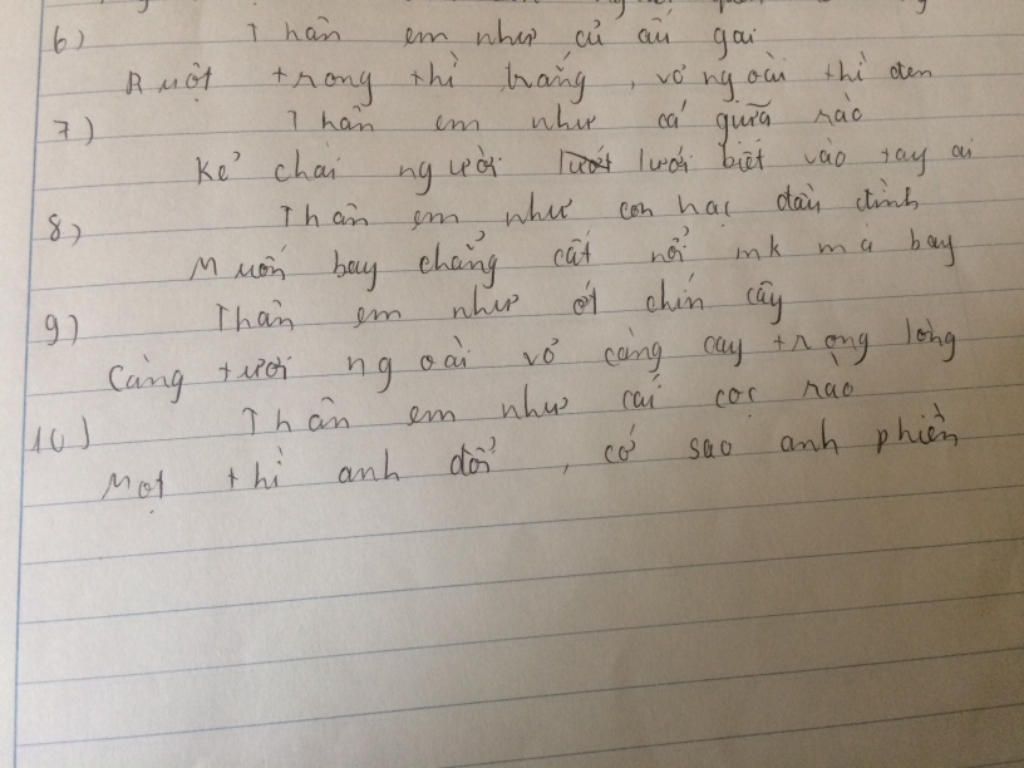 6) Thân em như củ ấu gai
Ruột trong thì trắng, vỏ ngoài thì đen
7) Thân em như cá giữa rào
Kẻ chài người lưới biết vào tay ai
8) Thân em như con hạc đầu đình
Muốn bay chẳng cất nổi mk mà bay
9) Thân em như ớt chín cây
Càng tươi ngoài vỏ càng cay trong lòng
10) Thân em như cái cọc rào
Mọt thì anh đổi, cớ sao anh phiền